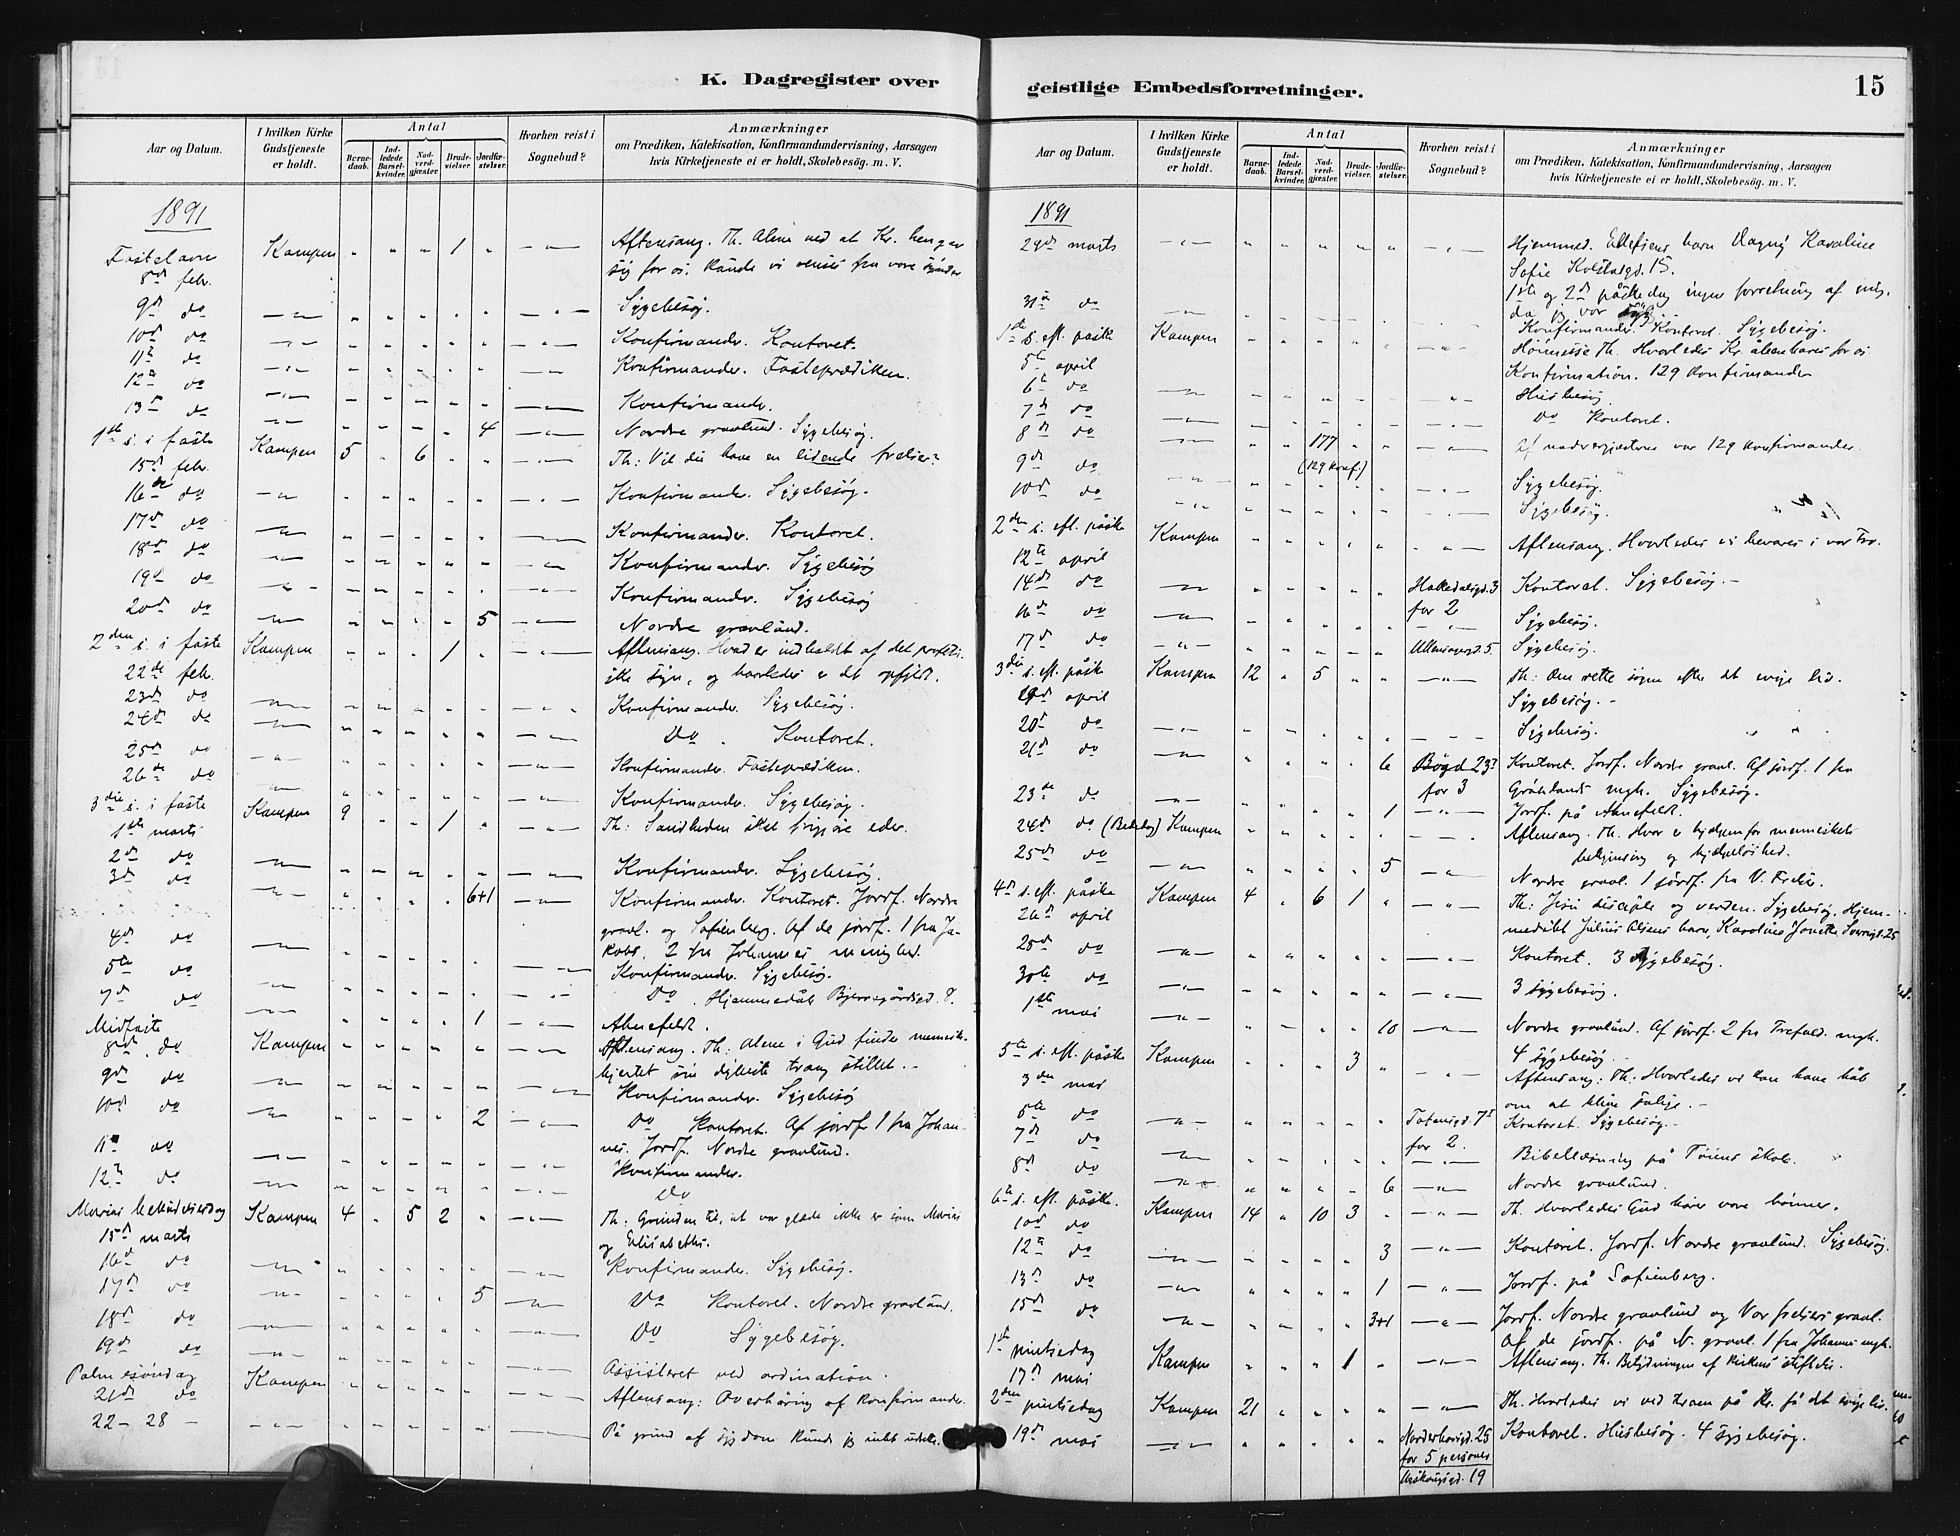 K. Dagregister over
geistlige Embedsforretninger.
15
Aar og Datum.
I hvilken Kirke Gudstjeneste er holdt.
Antal
Barne-daab.
Ind-ledede Barsel-kvinder.
Nad-verd-gjæster.
Brude-vielser.
Jordfæ-stelser.
Hvorhen reist i Sognebud?
Anmærkninger
om Prædiken, Katekisation, Konfirmandundervisning, Aarsagen
hvis Kirketjeneste ei er holdt, Skolebesøg. m. V.
1891
Fastelavn Kampen " " " 1 " Aftensang. Th. Alene ved at Kr. hengav
8d febr. sig for os, kunde vi renses fra vore synder
9d do Sygebesøg.
10d do Konfirmander. Kontoret.
11te do Konfirmander. Fasteprædiken.
12te do Konfirmander.
13de do 4 Nordre gravlund. Sygebesøg.
1ste s. i faste Kampen 5 " 6 " " Th: Vil du have en lidende frelser?
15d febr.
16de do Konfirmander. Sygebesøg.
17d do Konfirmander. Kontoret.
18d do Konfirmander. Sygebesøg
19d do Konfirmander. Sygebesøg
20d do 5 Nordre gravlund.
2den s. i faste Kampen " " " 1 " Aftensang. Hvad er indholdet af det profeti-
22de febr. ske syn, og hvorledes er det opfyldt.
23d do Konfirmander. Sygebesøg.
24d do Do. Kontoret.
25d do Konfirmander. Fasteprædiken.
26de do Konfirmander. Sygebesøg.
3die s. i faste Kampen 9 " " 1 " Th: Sandheden skal frigjøre eder.
1ste marts
2d do Konfirmander. Sygebesøg.
3d do 6+1 Konfirmander. Kontoret. Jordf. Nordre
gravl. og Sofienberg. Af de jordf. 1 fra Ja-
4d do kobs, 2 fra Johannes menighed.
5te do Konfirmander. Sygebesøg.
7d do Do. Hjemmedåb 8.
Midfaste 1 Ahnefeldt.
8d do Kampen Aftensang. Th: Alene i Gud finder menneske-
hjertet sin dybeste trang stillet.
9d do Konfirmander. Sygebesøg
10d do 2 Do Kontoret. Af jordf. 1 fra Johan-
nes. Jordf. Nordre gravlund.
11te do Konfirmander.
12te do Do
Marias bebudelsesdag Kampen 4 " 5 2 " Th: Grunden til, at vor glæde ikke er som Marias
15d marts og Elisabeths.
16d do Konfirmander. Sygebesøg.
17d do 5 Do Kontoret. Nordre gravlund.
18d do Do Sygebesøg.
19d do Assisteret ved ordination.
Palmesøndag Kampen Aftensang: Overhøring af Konfirmander.
21d do
22 - 28 - På grund af sygdom kunde jeg intet udrette.
Aar og Datum.
I hvilken Kirke Gudstjeneste er holdt.
Antal
Barne-daab.
Ind-ledede Barsel-kvinder.
Nad-verd-gjæster.
Brude-vielser.
Jordfæ-stelser.
Hvorhen reist i Sognebud?
Anmærkninger
om Prædiken, Katekisation, Konfirmandundervisning, Aarsagen
hvis Kirketjeneste ei er holdt, Skolebesøg. m. V.
1891
29d marts Hjemmed. Ellefsens barn Dagny Karoline
Sofie 15.
1ste og 2d påskedag ingen forretning af mig,
da jeg var syg.
31te do Konfirmander. Kontoret. Sygebesøg.
1ste s. eft. påske Kampen Høimesse Th. Hvorledes Kr. åbenbares for os
5te april Konfirmation. 129 Konfirmander
6te do Husbesøg
7d do Do Kontoret.
8d do 177 Af nadvergjæsterne var 129 konfirmander.
9d do (129 konf.) Sygebesøg.
10d do Sygebesøg.
2den s. eft. påske Kampen Aftensang. Hvorledes vi bevares i vor Tro.
12te april
14d do Halledalsgd. 3 Kontoret. Sygebesøg.
for 2
16de do Sygebesøg.
17d do Ullensagd. 5. Sygebesøg.
3die s. eft. påske Kampen 12 " 5 " " Th: Den rette søgen efter det evige liv.
19d april Sygebesøg.
20d do Sygebesøg.
21d do 6 Bøgd 23 Kontoret. Jordf. Nordre gravl. Af jordf. 1 fra
for 3 Grønlands mgh. Sygebesøg.
23de do 1 Jordf. på Ahnefeldt.
24d do (Bededag) Kampen Aftensang. Th. Hvor er hjælpen for menneskets
og hjælpeløshed.
25d do 5 Nordre gravl. 1 jordf. fra V. Frelser.
4d s. eft. påske Kampen 4 " 6 1 " Th: Jesu disciple og verden. Sygebesøg. Hjem-
26d april medåbt Julius Olsens barn, Karoline Jonette 25
28d do Kontoret. 3 sygebesøg.
30te do 3 sygebesøg.
1ste mai 10 Nordre gravlund. Af jordf. 2 fra Trefold. mgh.
4 sygebesøg.
5te s. eft. påske Kampen " " " 3 " Aftensang: Th: Hvorledes vi kan have håb
3die mai om at blive salige.
5te do Totensgd. 7 Kontoret. Sygebesøg.
for 2.
7d do Bibellæsning på Tøiens skole.
8d do 6 Nordre gravlund.
6te s. eft. påske. Kampen 14 " 10 3 " Th. Hvorledes Gud hører vore bønner.
10d do
12te do 3 Kontoret. Jordf. Nordre gravlund. Sygebesøg.
13d do 1 Jordf. på Sofienberg.
15d do 3+1 Jordf. Nordre gravlund og Vor frelsers gravl.
Af de jordf. på N. gravl. 1 fra Johannes mgh.
1ste pintsedag Kampen " " " 1 " Aftensang. Th. Betydningen af kirkens stiftelse.
17d mai
2den pintsedag Kampen 21 Th. Hvorledes vi ved troen på Kr. få det evige liv.
19d mai Norderhovsgd. 25 Kontoret. Husbesøg. 4 sygebesøg.
for 5 personer
Urskougsgd. 19